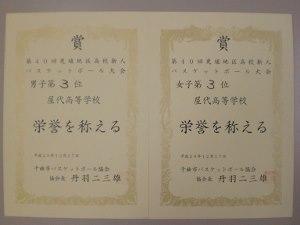 賞
第40回更埴地区高校新人
バスケットボール大会
男子第3位
屋代高等学校
栄誉を称える
平成24年12月27日
千曲市バスケットボール協会
協会長 丹羽二三雄
賞
第40回更埴地区高校新人
バスケットボール大会
女子第3位
屋代高等学校
栄誉を称える
平成24年12月27日
千曲市バスケットボール協会
協会長 丹羽二三雄